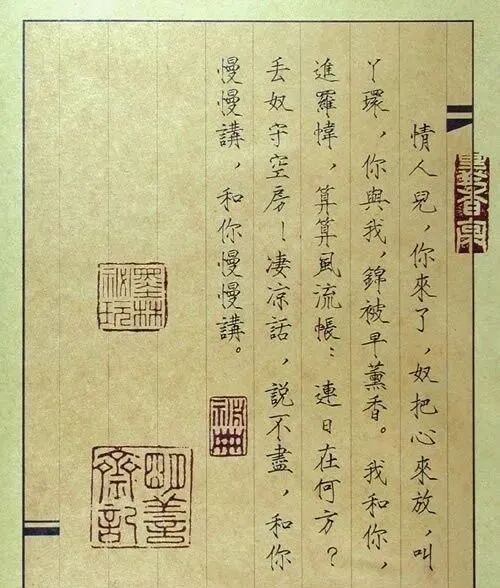 情人兒，你來了，奴把心來放，叫
丫環，你與我，錦被早薰香。我和你，
進羅幃，算算風流帳：連日在何方？
丟奴守空房！凄涼話，說不盡，和你
慢慢講，和你慢慢講。
墨林祕玩
明善齋記